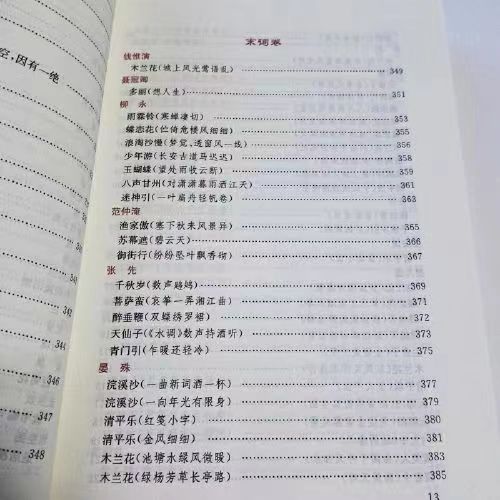 空,因有一绝
342
344
345
346
347
348
宋词卷
钱惟演
木兰花(城上风光莺语乱) 349
聂冠卿
多丽(想人生) 351
柳 永
雨霖铃(寒蝉凄切) 353
蝶恋花(伫倚危楼风细细) 355
浪淘沙慢(梦觉,透窗风一线) 356
少年游(长安古道马迟迟) 358
玉蝴蝶(望处雨收云断) 359
八声甘州(对潇潇暮雨洒江天) 361
迷神引(一叶扁舟轻帆卷) 363
范仲淹
渔家傲(塞下秋来风景异) 365
苏幕遮(碧云天) 366
御街行(纷纷坠叶飘香砌) 367
张 先
千秋岁(数声鶗鴂) 369
菩萨蛮(哀筝一弄湘江曲) 371
醉垂鞭(双蝶绣罗裙) 372
天仙子(《水调》数声持酒听) 373
青门引(乍暖还轻冷) 375
晏 殊
浣溪沙(一曲新词酒一杯) 377
浣溪沙(一向年光有限身) 379
清平乐(红笺小字) 380
清平乐(金风细细) 381
木兰花(池塘水绿风微暖) 383
木兰花(绿杨芳草长亭路) 385
13